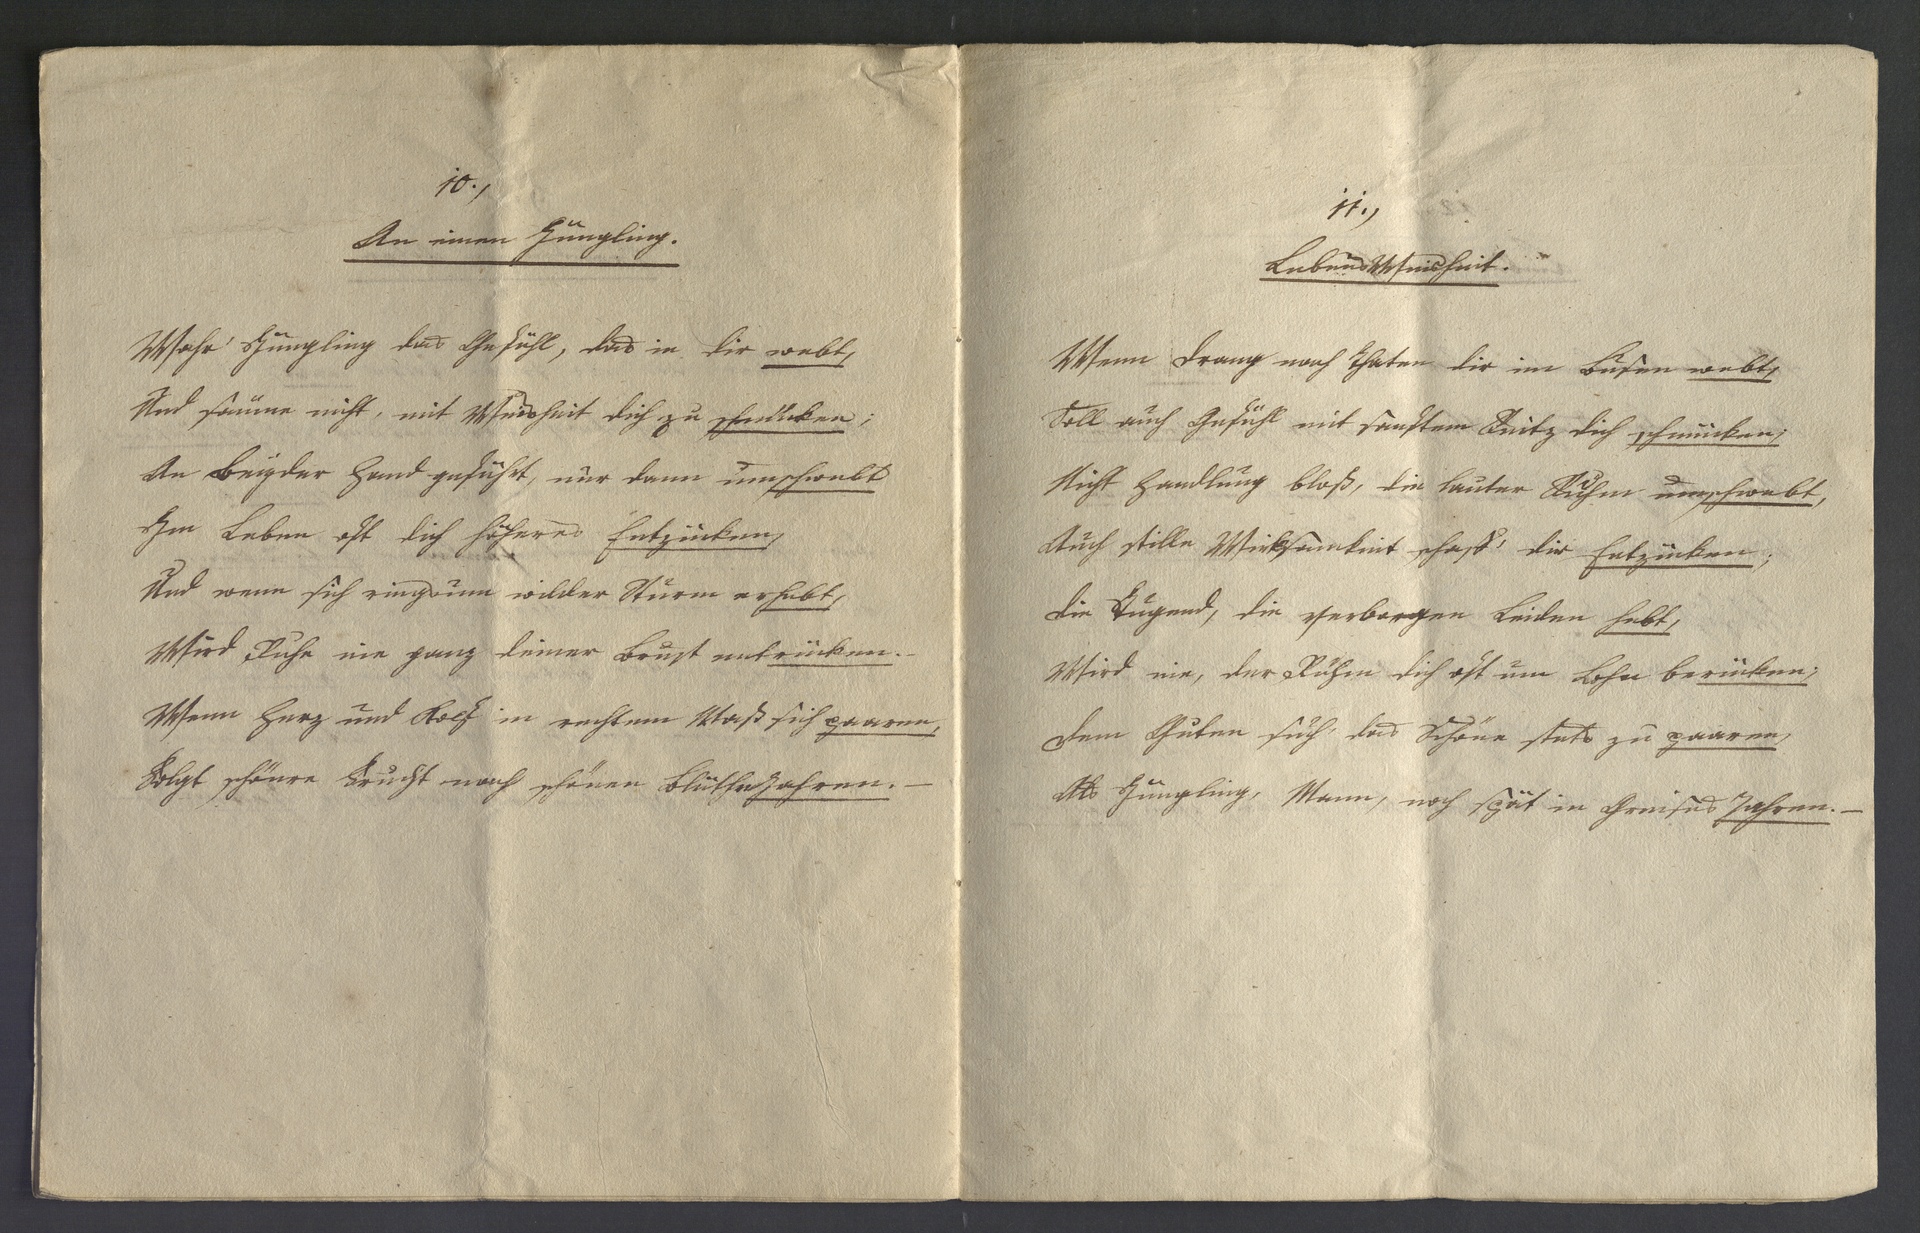 10.,
An einen Jüngling.
Wahr' Jüngling das Gefühl, das in dir webt,
Und säume nicht, mit Weisheit dich zu schmücken;
An Beyder Hand geführt, nur dann umschwebt
Im Leben oft dich höheres Entzücken,
Und wenn sich ringsum wilder Sturm erhebt,
Wird Ruhe nie ganz deiner Brust entrücken.–
Wenn Herz und Kopf in rechtem Maß sich paaren,
Folgt schönre Frucht nach schönen Blüthejahren.–
11.,
LebensWeisheit.
Wenn Drang nach Thaten dir im Busen webt,
Soll auch Gefühl mit sanftem Reitz dich schmücken;
Nicht Handlung bloß, die lauter Ruhm umschwebt,
Auch stille Wirksamkeit schaff' dir Entzücken;
Die Tugend, die verborgen Leiden hebt,
Wird nie, der Ruhm dich oft um Lohn berücken;
Dem Guten such' das Schöne stets zu paaren,
Als Jüngling, Mann, noch spät in Greises Jahren.–